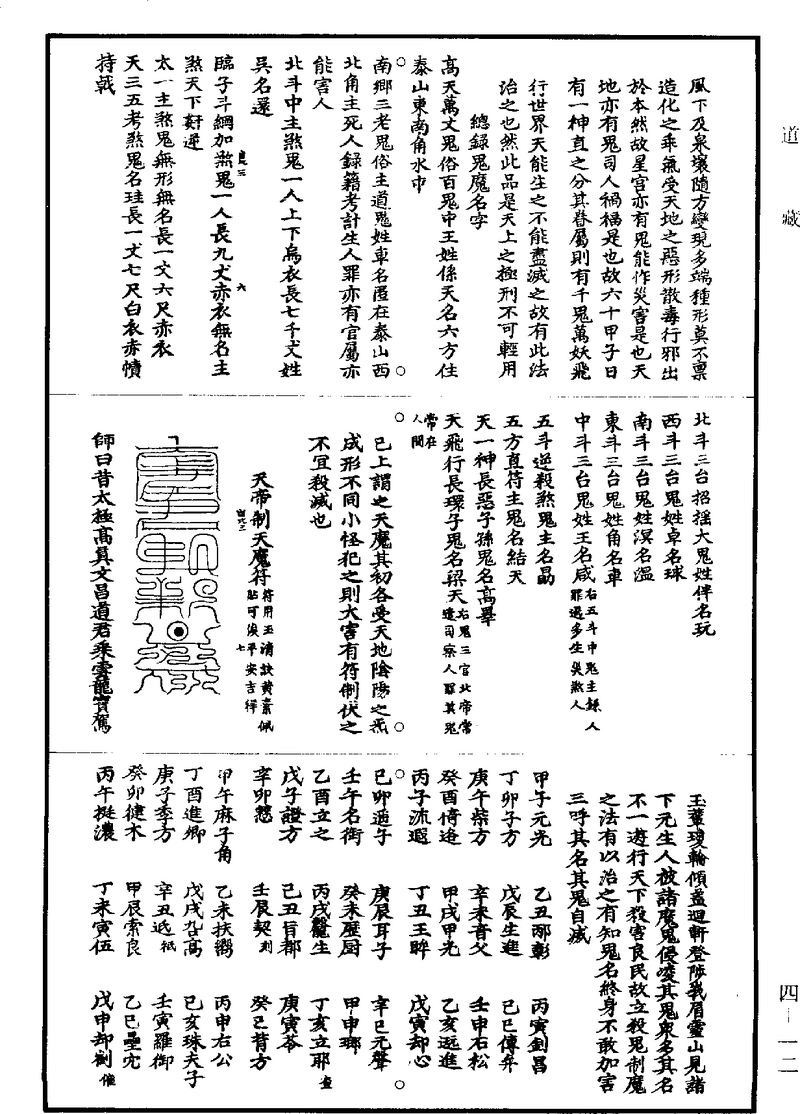 道藏
風下及泉壤隨方變現多端種形莫不禀
造化之乖氣受天地之惡形散毒行邪出
於本然故星宫亦有鬼能作災害是也天
地亦有鬼司人禍福是也故六十甲子日
有一神直之分其眷屬則有千鬼萬妖飛
行世界天能生之不能盡滅之故有此法
治之也然此品是天上之極刑不可輕用
總錄鬼魔名字
高天萬丈鬼俗百鬼中王姓係天名六方住
泰山東南角水中
南鄉三老鬼俗主道鬼姓車名匿在泰山西
北角主死人錄籍考計生人罪亦有官屬亦
能害人
北斗中主煞鬼一人上下烏衣長七千丈姓
吴名遝
臨子斗綱加煞鬼一人長九丈赤衣無名主
煞天下姧逆
太一主煞鬼無形無名長一丈六尺赤衣
天三五考煞鬼名珪長一丈七尺白衣赤幘
持戟
北斗三台招摇大鬼姓伴名玩
西斗三台鬼姓卓名球
南斗三台鬼姓溟名温
東斗三台鬼姓角名車
中斗三台鬼姓王名咸右五斗中鬼主錄人罪過多生災煞人
五斗逆殺煞鬼主名勗
五方直符主鬼名結天
天一神長惡子孫鬼名高舉
天飛行長環子鬼名梁天右鬼三官北帝常遣司察人罪其鬼
常在人間
已上謂之天魔其初各受天地陰陽之炁
成形不同小怪犯之則大害有符制伏之
不宜殺滅也
天帝制天魔符符用玉清訣黄素佩貼可俟平安吉祥
師曰昔太極高真文昌道君乘雲龍寶駕
玉輦瓊輪傾蓋迴軒登陟峩眉靈山見諸
下元生人被諸魔鬼侵唆其鬼衆多其名
不一遊行天下殺害良民故立殺鬼制魔
之法有以治之有知鬼名終身不敢加害
三呼其名其鬼自滅
甲子元光 乙丑郍彰 丙寅釗昌
丁卯子方 戊辰生進 己巳傳弃
庚午柴方 辛未音父 壬申石松
癸酉倚追 甲戌甲光 乙亥远進
丙子流遐 丁丑王眸 戊寅却心
己卯適子 庚辰耳子 辛巳元聲
壬午名銜 癸未歷厨 甲申瑯
乙酉立之 丙戌龕生 丁亥立耶
戊子證方 己丑旨都 庚寅苓
辛卯懇 壬辰契 癸巳背方
甲午麻子角 乙未扶獨 丙申右公
丁酉進卿 戊戌咎高 己亥珠夫子
庚子季方 辛丑远 壬寅羅御
癸卯健木 甲辰索良 乙巳壘宂
丙午挺濃 丁未寅伍 戊申却劀
四—一二